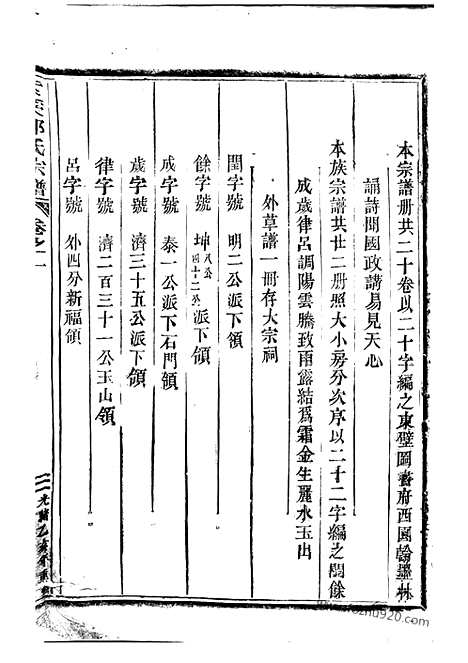 本宗譜册共二十卷以二十字編之東壁圖書府西園翰墨林
誦詩聞國政講易見天心
本族宗譜共廿二册照大小房分次序以二十二字編之閏餘
成歲律呂調陽雲騰致雨露結爲霜金生麗水玉出
外草譜一冊存大宗祠
閏字號 明二公派下領
餘字號 坤八公四十二公派下領
成字號 泰一公派下石門領
歲字號 濟三十五公派下領
律字號 濟二百三十一公玉山領
呂字號 外四分新福領
氏宗譜 卷之二
二 光緒乙亥重
zhu920.com